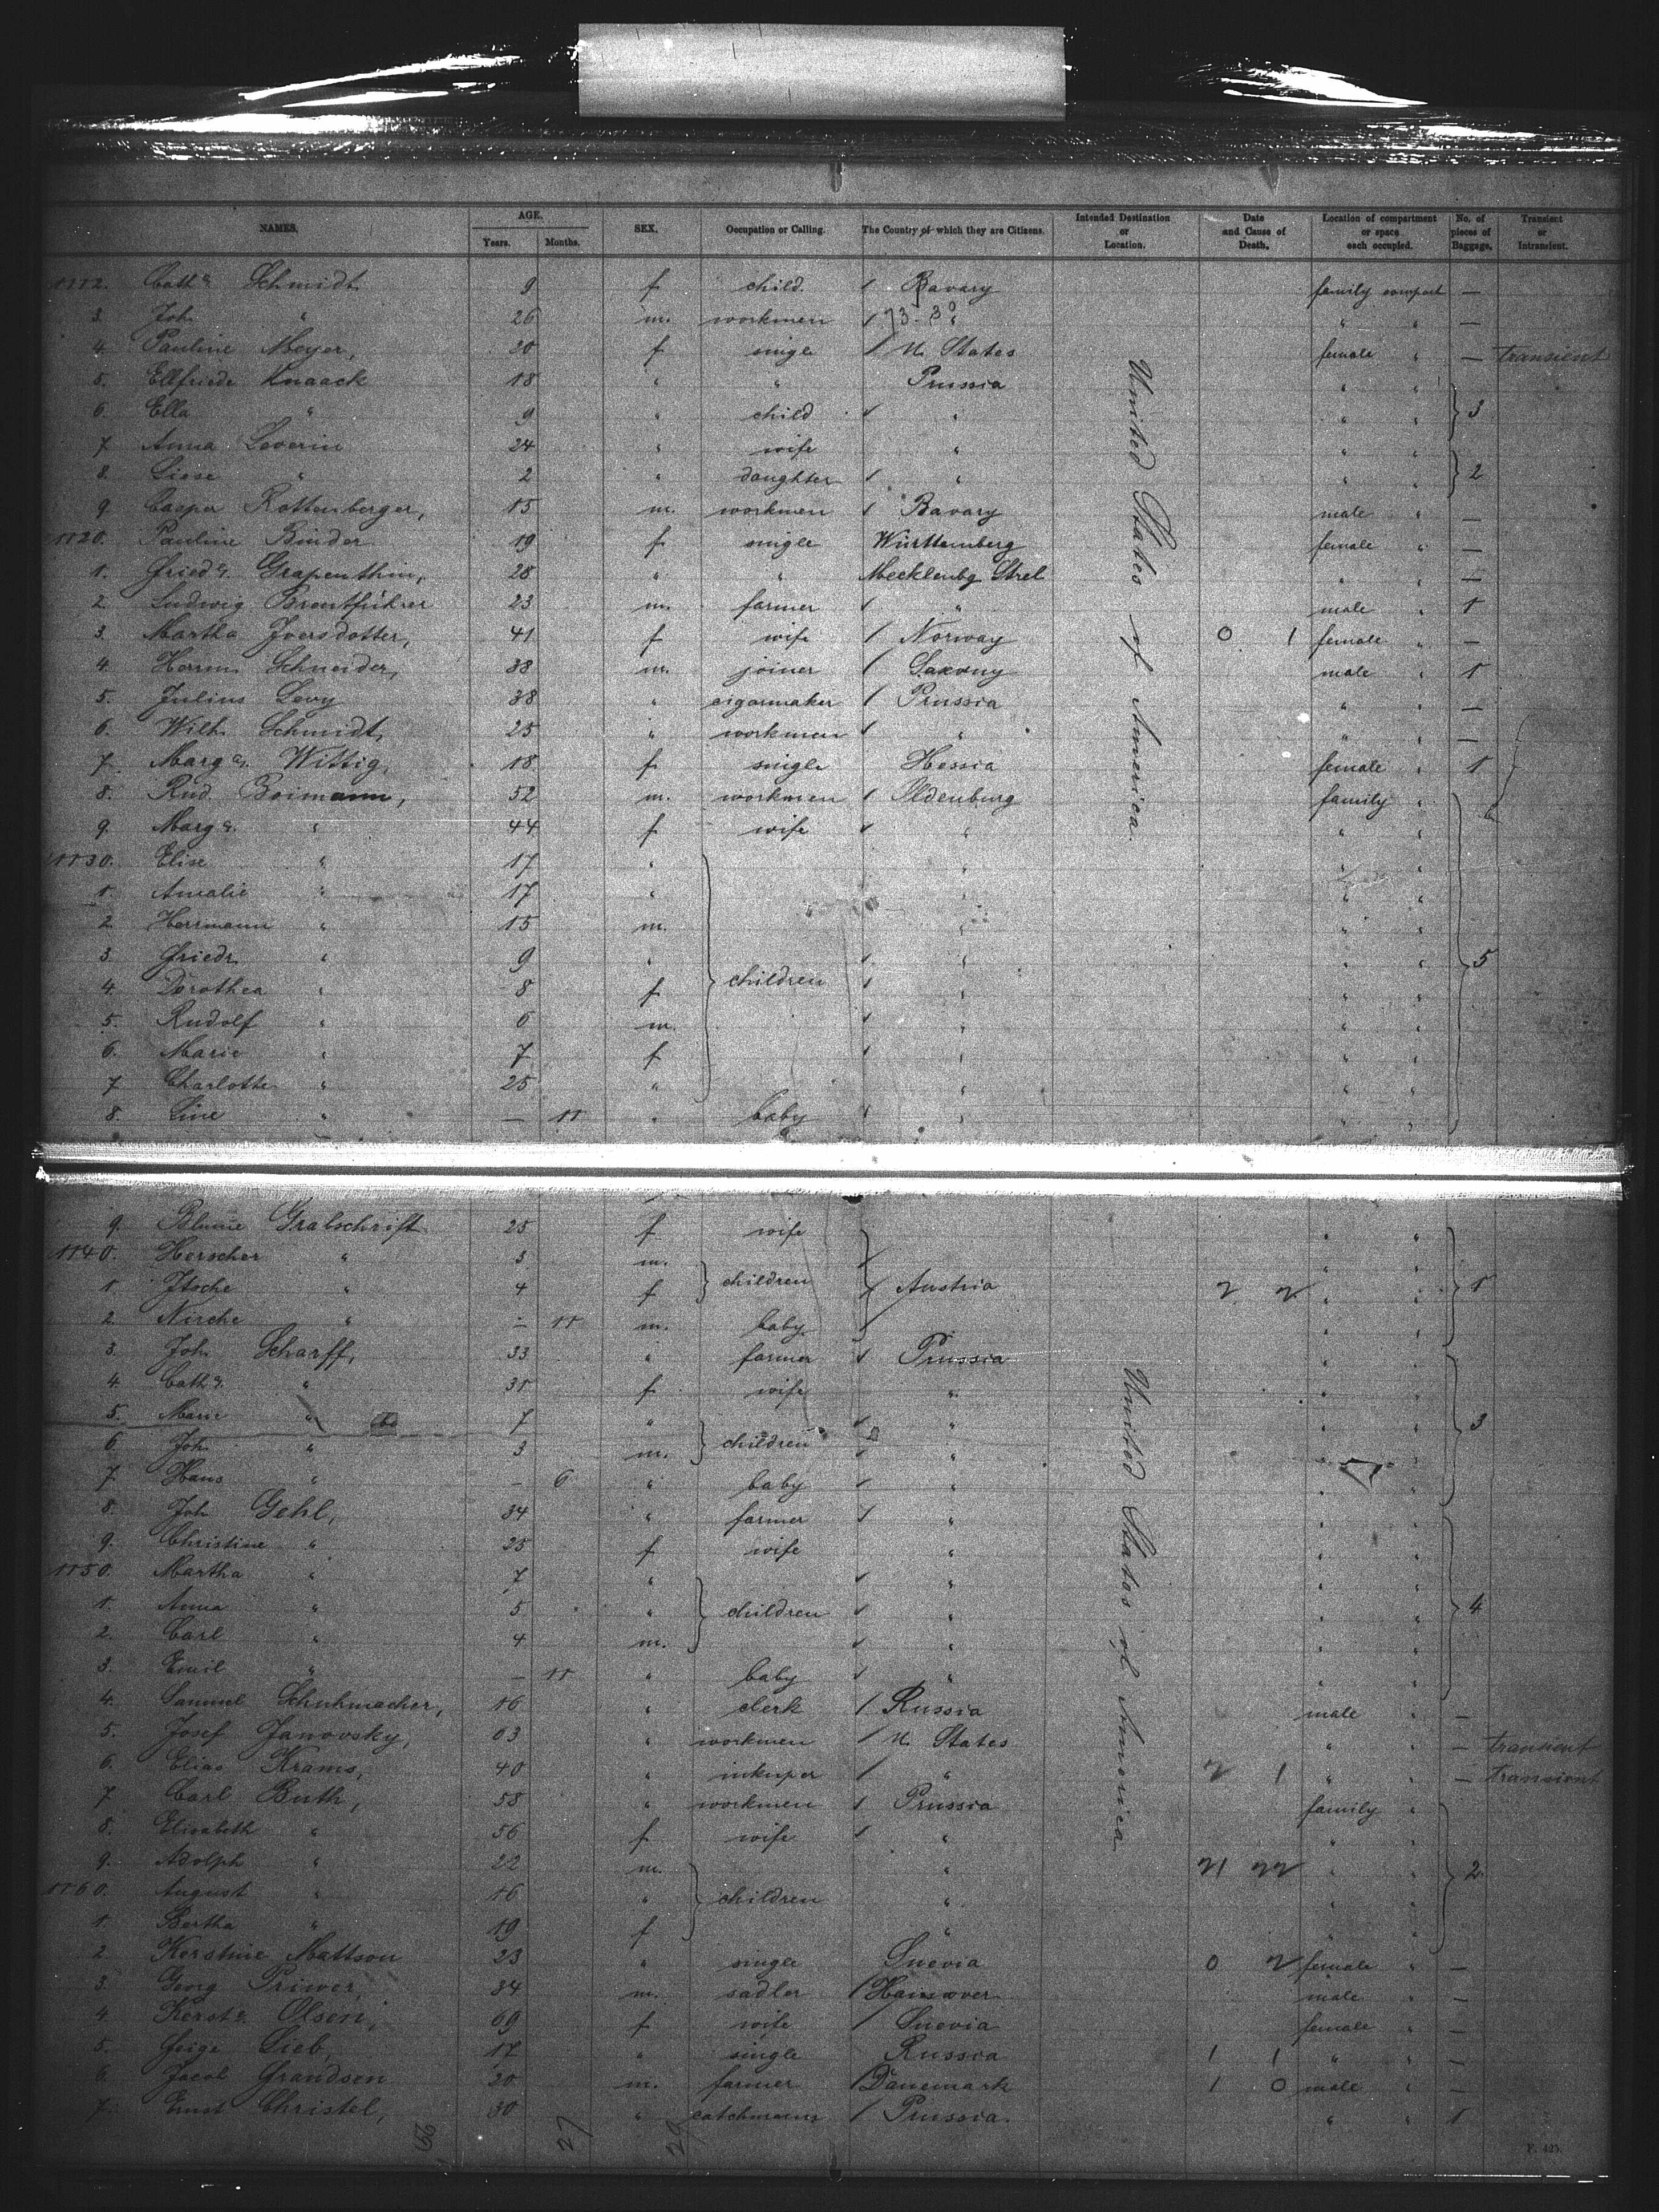 NAMES. AGE. Years. Months. SEX. Occupation or Calling. The Country of which they are Citizens. Intended Destination or Location. Date and Cause of Death. Location of compartment or space each occupied. No. of pieces of Baggage. Transient or Intransient.
1112. Cath a. Schmidt 9 f child / Bavary family compart —
3. Joh. " 26 m. workmen / " " " —
4. Pauline Meyer, 20 f single / U. States female " — transient
5. Ellfriede Knaack 18 " " Prussia " "
6. Ella " 9 " child / " " " } 3
7. Anna Severin 24 " wife " " "
8. Liese " 2 " daughter / " " " } 2
9. Casper Rottenberger, 15 m. workmen / Bavary male " —
1120. Pauline Binder 19 f single Württemberg female " —
1. Fried a. Grapenthin, 28 " " Mecklenbg Strel " " —
2. Ludwig Brentführer 23 m. farmer / " male " 1
3. Martha Iversdotter, 41 f wife / Norway 0 1 female " —
4. Herrm. Schneider, 38 m. joiner / Saxony male " 1
5. Julius Levy 38 " cigarmaker / Prussia " " —
6. Wilh. Schmidt, 25 " workmen / " " " —
7. Marg a. Wittig, 18 f single Hessia female " 1
8. Rud. Boimann, 52 m. workmen / Oldenburg family "
9. Marg a. " 44 f wife / " " "
1130. Elise " 17 " " " "
1. Amalie " 17 " " " "
2. Herrmann " 15 m. " " "
3. Friedr. " 9 " / " " " } 5
4. Dorothea " 8 f } children / " " "
5. Rudolf " 6 m. / " " "
6. Marie " 7 f / " " "
7. Charlotte " 25 " " " "
8. Line " — 11 " baby / " " "
United States of America.
9. Blume Grabschrift 25 f wife " "
1140. Herscher " 3 m. " "
1. Itsche " 4 f } children } Austria 2 2 " " } 1
2. Nirche " — 11 m. baby " "
3. Joh. Scharff, 33 " farmer / Prussia " "
4. Cath a. " 31 f wife " " "
5. Marie " 7 " / " " " } 3
6. Joh. " 3 m. } children / " " "
7. Hans " — 6 " baby / " " "
8. Joh. Gehl, 34 " farmer / " " "
9. Christine " 25 f wife " " "
1150. Martha " 7 " / " " "
1. Anna " 5 " } children / " " " } 4
2. Carl " 4 m. / " " "
3. Emil " — 11 " baby / " " "
4. Samuel Schuhmacher, 16 " clerk / Russia male " —
5. Josef Janovsky, 63 " workmen / U. States " " — transient
6. Elias Krams, 40 " inkuper / " 2 1 " " — transient
7. Carl Buth, 58 " workmen / Prussia family "
8. Elisabeth " 56 f wife / " " "
9. Adolph " 22 m. " 21 22 " " } 2
1160. August " 16 " } children " " "
1. Bertha " 19 f " " "
2. Kerstine Mattson 23 " single Suevia 0 2 female " —
3. Georg Priwer, 34 m. sadler / Hannover male " —
4. Kerst a. Olsen, 69 f wife / Suevia female " —
5. Feige Lieb, 17 " single Russia 1 1 " " —
6. Jacob Grandsen 20 m. farmer / Dänemark 1 0 male " —
7. Ernst Christel, 30 " / Prussia. " " 1
United States of America
27 29
F. 425.